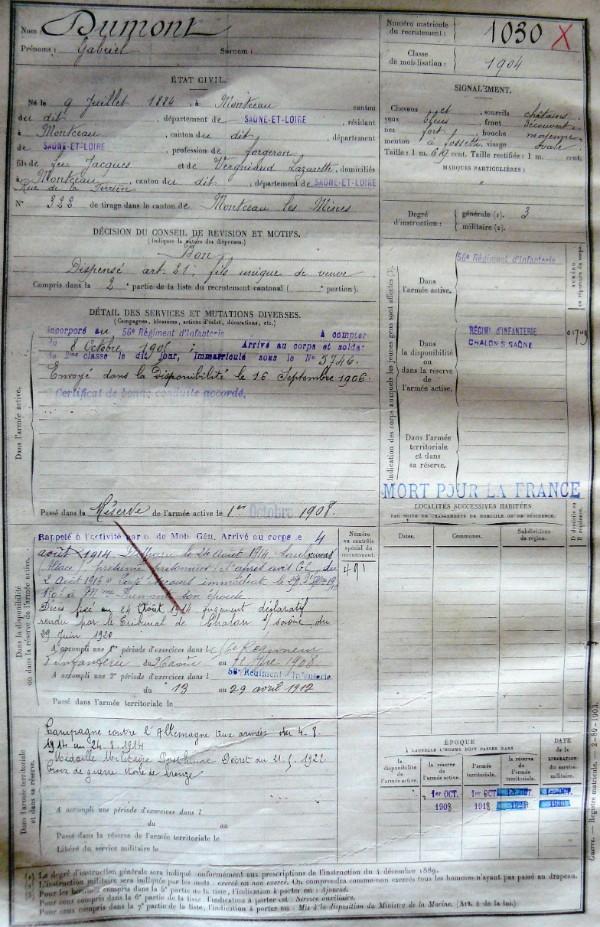 Nom Dumont
Prénoms : Gabriel Surnom :
Numéro matricule du recrutement : 1030 X
Classe de mobilisation : 1904
ÉTAT CIVIL.
Né le 9 Juillet 1884, à Montceau canton
du dit, département de SAONE-ET-LOIRE, résident
à Montceau, canton du dit, département
de SAONE-ET-LOIRE, profession de forgeron
fils de feu Jacques et de Vergniaud Lazarette, domiciliés
à Montceau, canton du dit, département de SAONE-ET-LOIRE
Rue de la
N° 222 de tirage dans le canton de Montceau les Mines
SIGNALEMENT.
Cheveux et sourcils châtains
yeux bleus front découvert
nez fort bouche moyenne
menton à fossette visage ovale
Taille : 1 m. cent. Taille rectifiée : 1 m. cent.
MARQUES PARTICULIÈRES :
Degré d'instruction : générale (1). 3
militaire (2).
DÉCISION DU CONSEIL DE REVISION ET MOTIFS.
(Indiquer la nature des dispenses.)
Bon
Dispensé art. 21 : fils unique de veuve
Compris dans la 2 partie de la liste du recrutement cantonal ( portion).
DÉTAIL DES SERVICES ET MUTATIONS DIVERSES.
(Campagnes, blessures, actions d'éclat, décorations, etc.)
Dans l'armée active.
Incorporé au 56e Régiment d'Infanterie à compter
du 8 Octobre Arrivé au corps et soldat
de 2ème classe le dit jour, immatriculé sous le N° 3746
Envoyé dans la Disponibilité le 16 Septembre 1906.
Certificat de bonne conduite accordé.
Passé dans la Réserve de l'armée active le 1er Octobre 1908.
Indication des corps auxquels les jeunes gens sont affectés (3).
Dans l'armée active.
56e Régiment d'Infanterie
Dans la disponibilité ou dans la réserve de l'armée active.
RÉGIMT D'INFANTERIE
CHALON S/SAÔNE
Dans l'armée territoriale et dans sa réserve.
MORT POUR LA FRANCE
LOCALITÉS SUCCESSIVES HABITÉES
PAR SUITE DE CHANGEMENTS DE DOMICILE OU DE RÉSIDENCE.
Dates. Communes. Subdivisions de région.
Numéro au contrôle spécial du recrutement.
491
Dans la disponibilité ou dans la réserve de l'armée active.
Rappelé à l'activité par o. de Mob. Gén. Arrivé au corps le 4
août 1914. le 24 Août 1914
Alsace) présumé prisonnier : d'après avis du
2 Août 1915. Secours immédiat de
à Mme Dumont son épouse
Décès fixé au 24 Août 1914 jugement déclaratif
rendu par le tribunal de Chalon s/Saône du
29 Juin 1920
A accompli une 1e période d'exercices dans l
d'infanterie du au 1908
A accompli une 2e période d'exercices dans l 56e Régiment d'Infanterie
du 13 au 29 avril 1912
Passé dans l'armée territoriale le
Dans l'armée territoriale et dans sa réserve.
Campagne contre l'Allemagne aux armées du 4-8-
1914 au 24-8-1914
Médaille Militaire Posthume Décret du 1922
Croix de guerre étoile de bronze
A accompli une période d'exercices dans l
du au
Passé dans la réserve de l'armée territoriale le
Libéré du service militaire le
ÉPOQUE
À LAQUELLE L'HOMME DOIT PASSER DANS
la disponibilité de l'armée active. la réserve de l'armée active. l'armée territoriale. la réserve de l'armée territoriale.
DATE de la LIBÉRATION du service militaire.
1er OCT. 1er OCT.
1908 1918
(1) Le degré d'instruction générale sera indiqué conformément aux prescriptions de l'instruction du 4 décembre 1889.
(2) L'instruction militaire sera indiquée par les mots : exercé ou non exercé. On comprendra comme non exercés tous les hommes n'ayant pas passé au drapeau.
(3) Pour les hommes compris dans la 5e partie de la liste, l'indication à porter est : Ajourné.
Pour ceux compris dans la 6e partie de la liste, l'indication à porter est : Service auxiliaire.
Pour ceux compris dans la 7e partie de la liste, l'indication à porter est : Mis à la disposition du Ministre de la Marine. (Art. 4 de la loi.)